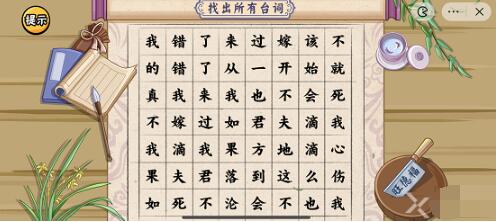 找出所有台词
提示
我错了来过嫁该不
的错了从一开始就
真我来我也不会死
不嫁过如君夫滴我
我滴我果方地滴心
果夫君落到这么伤
如死不沦会不也我
旺德福